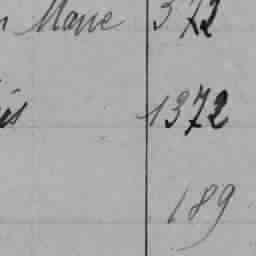 Marie 372
1372
189